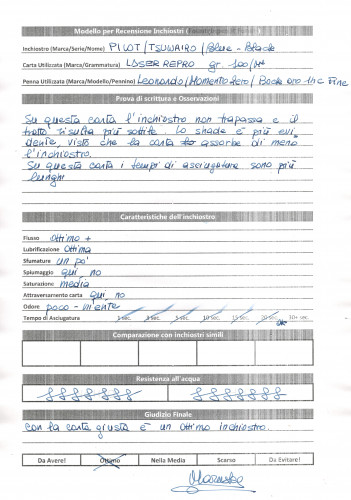 Modello per Recensione Inchiostri
Inchiostro (Marca/Serie/Nome) PILOT/TSUWAIRO/Blue-Black
Carta Utilizzata (Marca/Grammatura) LASER REPRO gr. 100/mt
Penna Utilizzata (Marca/Modello/Pennino) Leonardo/Momento Zero/Bock oro 14c Fine
Prova di scrittura e Osservazioni
Su questa carta l'inchiostro non trapassa e il
tratto risulta più sottile. Lo shade è più evi
dente, visto che la carta assorbe di meno
l'inchiostro.
Su questa carta i tempi di asciugatura sono più
lunghi
Caratteristiche dell'inchiostro
Flusso Ottimo +
Lubrificazione Ottima
Sfumature un po'
Spiumaggio qui no
Saturazione media
Attraversamento carta qui no
Odore poco-niente
Tempo di Asciugatura 1 sec. 3 sec. 5 sec. 10 sec. 15 sec. 20 sec. ok 30+ sec.
Comparazione con inchiostri simili
Resistenza all'acqua
Giudizio Finale
Con la carta giusta è un ottimo inchiostro.
Da Avere! Ottimo Nella Media Scarso Da Evitare!